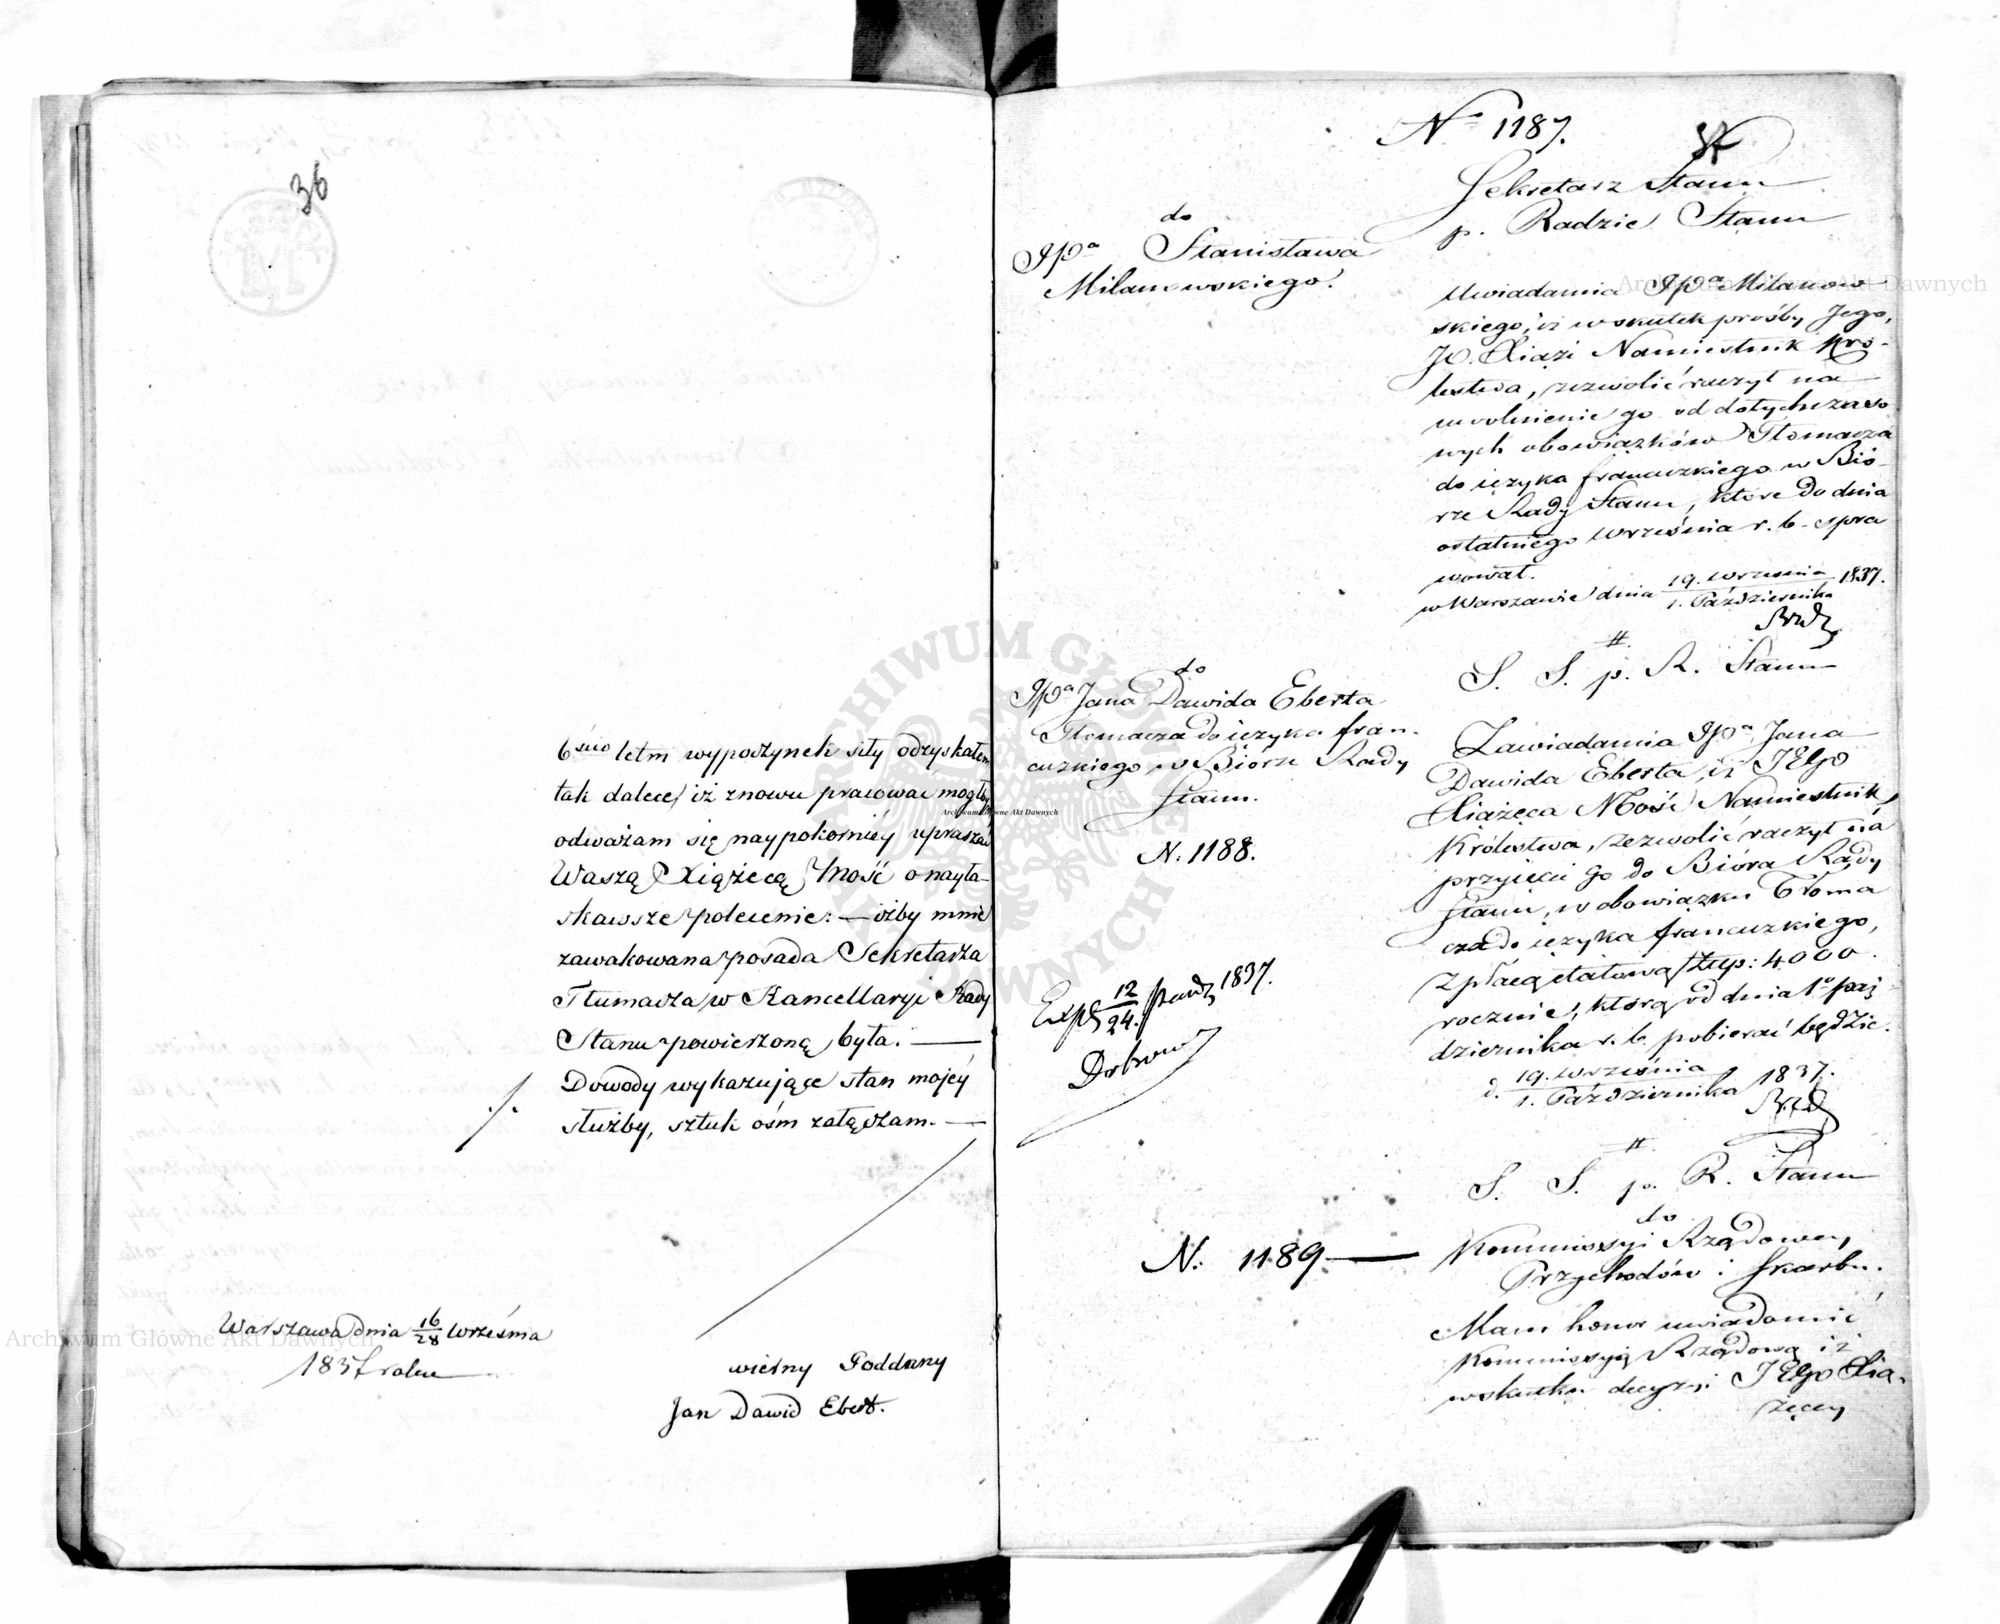 36
6ścio letni wypoczynek siły odzyskałem
tak dalece, iż znowu pracować mogłby
odważam się naypokorniéy upraszać
Waszą Xiążęcą Mość o nayła-
skawsze polecenie: — iżby mnie
zawakowana posada Sekretarza
Tłumacza w Kancellaryi Rady
Stanu powierzoną była. —
Dowody wykazujące stan mojéy
służby, sztuk ośm załączam. —
Warszawa dnia 16/28 Września
1837 roku
wierny Poddany
Jan Dawid Ebert.
No 1187.
37
Sekretarz Stanu
p. Radzie Stanu
do
JPa Stanisława
Milanowskiego.
Uwiadamia JPa Milanow-
skiego, iż w skutek prośby Jego,
JO. Xiąże Namiestnik Kró-
lestwa, zezwolić raczył na
uwolnienie go od dotychczaso
wych obowiązków Tłomacza
do ięzyka francuzkiego w Bió-
rze Rady Stanu, które do dnia
ostatniego Września r. b. spra
wował.
w Warszawie dnia 19. Września / 1. Października 1837.
#
S. S. p. R. Stanu
do
JPa Jana Dawida Eberta
Tłomacza do ięzyka fran-
cuzkiego w Biórze Rady
Stanu.
N. 1188.
Zawiadamia JPa Jana
Dawida Eberta, iż JEgo
Xiążęca Mość Namiestnik
Królestwa, zezwolić raczył na
przyięcie go do Bióra Rady
Stanu, w obowiązku Tłoma
cza do ięzyka francuzkiego,
z płacą etatową Złtp: 4000.
rocznie, którą od dnia 1o paź-
dziernika r. b. pobierać będzie.
d. 19. Września / 1. Października 1837.
Exp. 12/24. Paźdz 1837.
#
S. S. p. R. Stanu
do
N. 1189 — Kommissyi Rządowey
Przychodów i Skarbu.
Mam honor uwiadomić
Kommissyią Rządową iż
w skutku decyzyi JEgo Xią-
żęcey
Archiwum Główne Akt Dawnych
Archiwum Główne Akt Dawnych
Archiwum Główne Akt Dawnych
ARCHIWUM GŁÓWNE AKT DAWNYCH